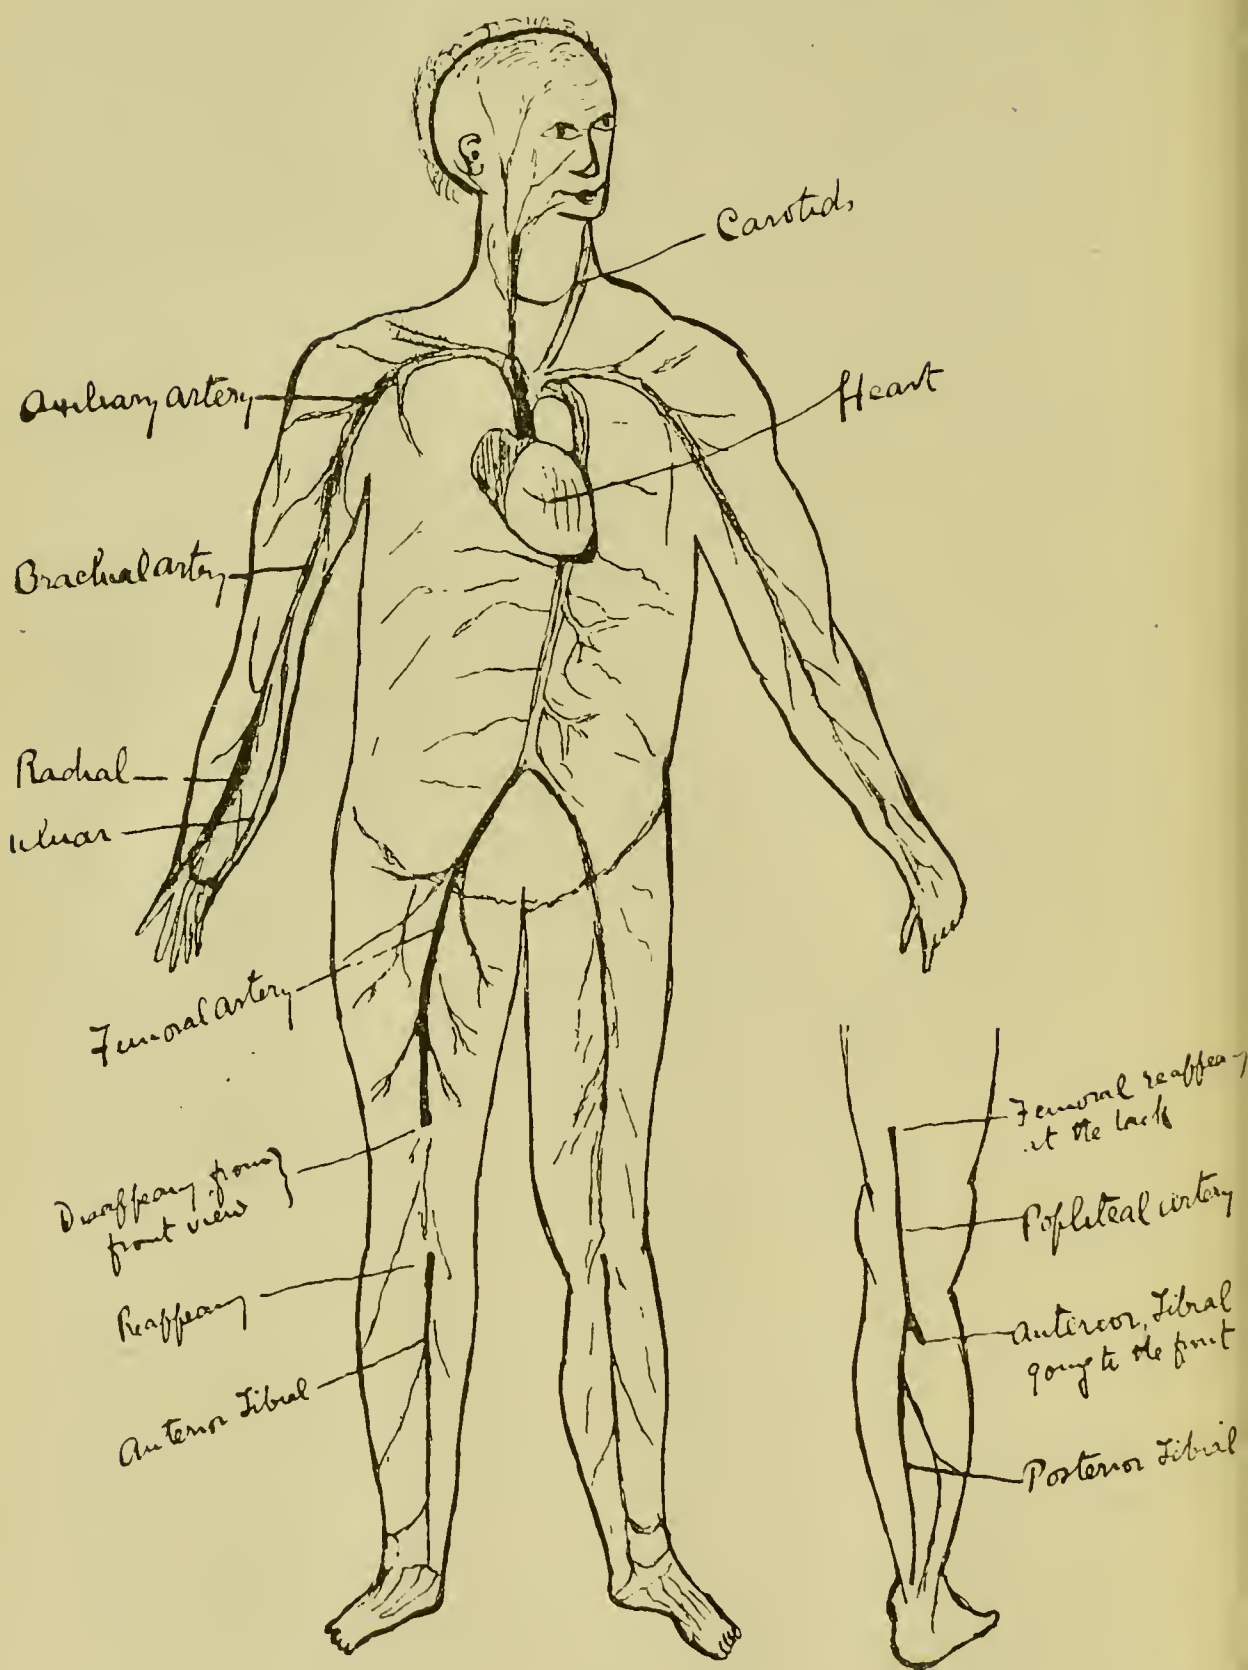 Carotids
Axillary artery
Heart
Brachial artery
Radial
Ulnar
Femoral artery
Disappearg from
front view
Reappearg
Anterior Tibial
Femoral reappearg
at the back
Popliteal artery
Anterior, Tibial
going to the front
Posterior Tibial